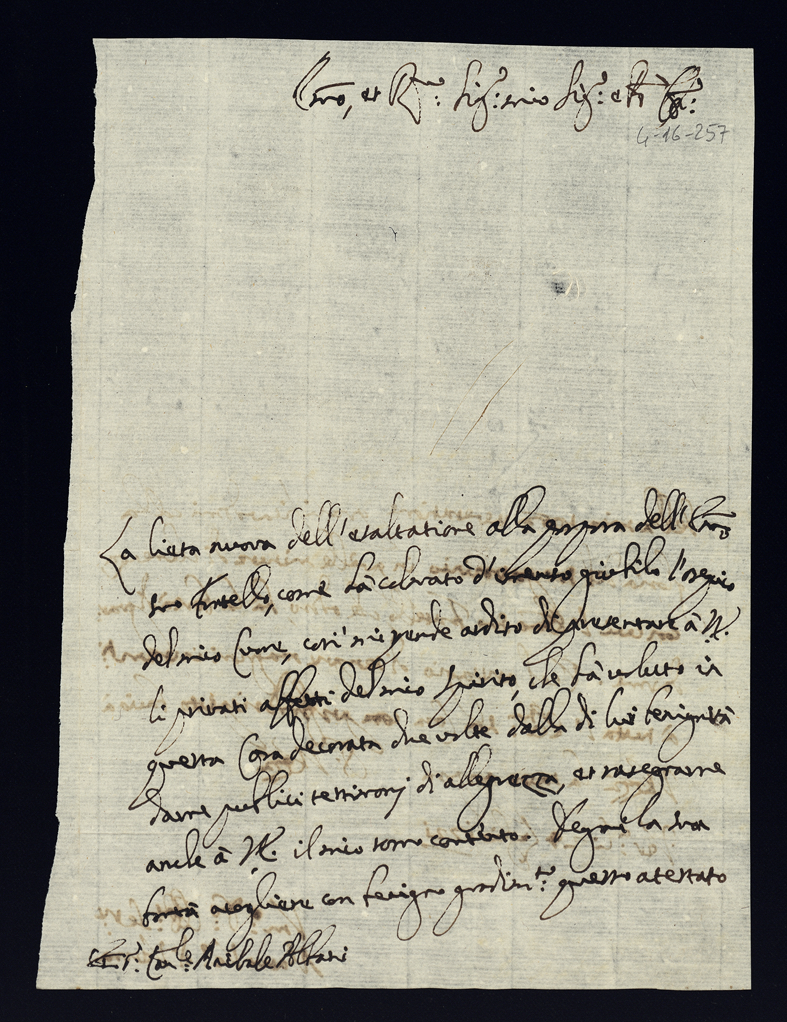 Emo, et Rmo: Sig:r mio Sig:r
4-16-257
La lieta nuova dell'esaltatione alla porpora dell'Emo
suo Fratello, come hà colmato d'immenso giubilo l'ossequio
del mio Cuore, così mi rende ardito di presentare à V.E.
li privati affetti del mio spirito, che hà voluto in
questa Casa decorata due volte dalla di lui benignità
darne publici testimonj di allegrezza, et rasegnarne
anche à V.E. il mio sommo contento. Degni la sua
bontà accogliere con benigno gradim.to questo attestato
Car.le Anibale Albani